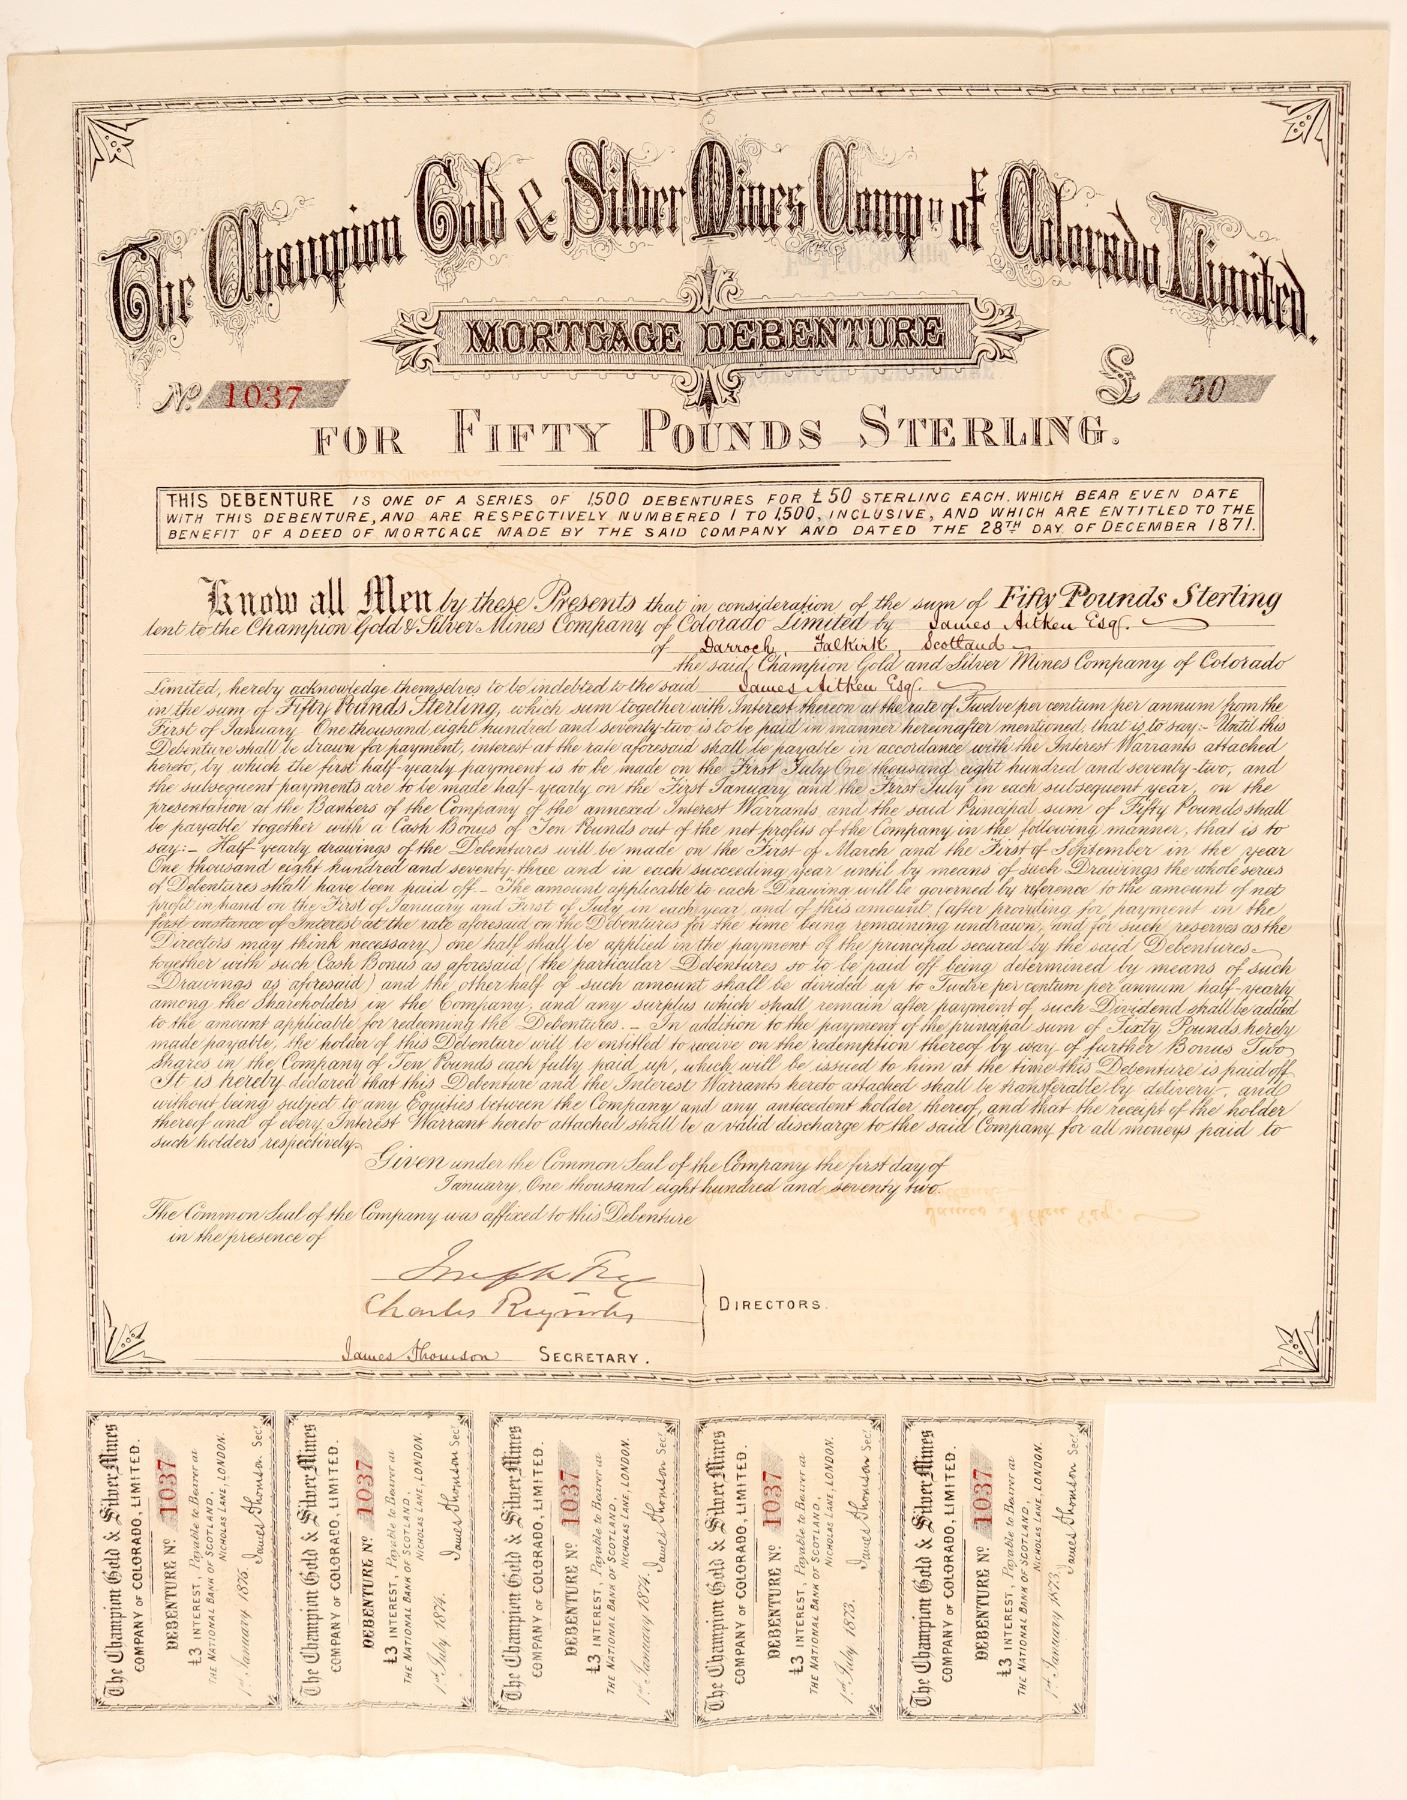 The Champion Gold & Silver Mines Compy. of Colorado Limited.
MORTGAGE DEBENTURE
No. 1037
£ 50
FOR FIFTY POUNDS STERLING.
THIS DEBENTURE IS ONE OF A SERIES OF 1,500 DEBENTURES FOR £50 STERLING EACH. WHICH BEAR EVEN DATE
WITH THIS DEBENTURE, AND ARE RESPECTIVELY NUMBERED 1 TO 1,500, INCLUSIVE, AND WHICH ARE ENTITLED TO THE
BENEFIT OF A DEED OF MORTGAGE MADE BY THE SAID COMPANY AND DATED THE 28TH DAY OF DECEMBER 1871.
Know all Men by these Presents that in consideration of the sum of Fifty Pounds Sterling
lent to the Champion Gold & Silver Mines Company of Colorado Limited by James Aitken Esq.
of Darroch, Falkirk, Scotland
the said Champion Gold and Silver Mines Company of Colorado
Limited, hereby acknowledge themselves to be indebted to the said James Aitken Esq.
in the sum of Fifty Pounds Sterling, which sum together with Interest thereon at the rate of Twelve per centum per annum from the
First of January One thousand eight hundred and seventy-two is to be paid in manner hereinafter mentioned, that is to say:- Until this
Debenture shall be drawn for payment, interest at the rate aforesaid shall be payable in accordance with the Interest Warrants attached
hereto, by which the first half-yearly payment is to be made on the First July One thousand eight hundred and seventy-two, and
the subsequent payments are to be made half-yearly on the First January and the First July in each subsequent year, on the
presentation at the Bankers of the Company of the annexed Interest Warrants, and the said Principal sum of Fifty Pounds shall
be payable together with a Cash Bonus of Ten Pounds out of the net profits of the Company in the following manner, that is to
say:- Half yearly drawings of the Debentures will be made on the First of March and the First of September in the year
One thousand eight hundred and seventy-three and in each succeeding year until by means of such Drawings the whole series
of Debentures shall have been paid off - The amount applicable to each Drawing will be governed by reference to the amount of net
profit in hand on the First of January and First of July in each year, and of this amount, (after providing for payment in the
first instance of Interest at the rate aforesaid on the Debentures for the time being remaining undrawn, and for such reserves as the
Directors may think necessary) one half shall be applied in the payment of the principal secured by the said Debentures
together with such Cash Bonus as aforesaid (the particular Debentures so to be paid off being determined by means of such
Drawings as aforesaid) and the other half of such amount shall be divided up to Twelve per centum per annum half-yearly
among the Shareholders in the Company, and any surplus which shall remain after payment of such Dividend shall be added
to the amount applicable for redeeming the Debentures. - In addition to the payment of the principal sum of Sixty Pounds hereby
made payable, the holder of this Debenture will be entitled to receive on the redemption thereof by way of further Bonus Two
Shares in the Company of Ten Pounds each fully paid up, which will be issued to him at the time this Debenture is paid off
It is hereby declared that this Debenture and the Interest Warrants hereto attached shall be transferable by delivery, and
without being subject to any Equities between the Company and any antecedent holder thereof, and that the receipt of the holder
thereof and of every Interest Warrant hereto attached shall be a valid discharge to the said Company for all moneys paid to
such holders respectively.
Given under the Common Seal of the Company the first day of
January, One thousand eight hundred and seventy two.
The Common Seal of the Company was affixed to this Debenture
in the presence of
Joseph Fry
Charles Reynolds
DIRECTORS.
James Thomson SECRETARY.
The Champion Gold & Silver Mines
COMPANY OF COLORADO, LIMITED.
DEBENTURE No 1037
£3 INTEREST, Payable to Bearer at
THE NATIONAL BANK OF SCOTLAND,
NICHOLAS LANE, LONDON.
1st January 1875. James Thomson Secy.
The Champion Gold & Silver Mines
COMPANY OF COLORADO, LIMITED.
DEBENTURE No 1037
£3 INTEREST, Payable to Bearer at
THE NATIONAL BANK OF SCOTLAND,
NICHOLAS LANE, LONDON.
1st July 1874. James Thomson Secy.
The Champion Gold & Silver Mines
COMPANY OF COLORADO, LIMITED.
DEBENTURE No 1037
£3 INTEREST, Payable to Bearer at
THE NATIONAL BANK OF SCOTLAND,
NICHOLAS LANE, LONDON.
1st January 1874. James Thomson Secy.
The Champion Gold & Silver Mines
COMPANY OF COLORADO, LIMITED.
DEBENTURE No 1037
£3 INTEREST, Payable to Bearer at
THE NATIONAL BANK OF SCOTLAND,
NICHOLAS LANE, LONDON.
1st July 1873. James Thomson Secy.
The Champion Gold & Silver Mines
COMPANY OF COLORADO, LIMITED.
DEBENTURE No 1037
£3 INTEREST, Payable to Bearer at
THE NATIONAL BANK OF SCOTLAND,
NICHOLAS LANE, LONDON.
1st January 1873. James Thomson Secy.